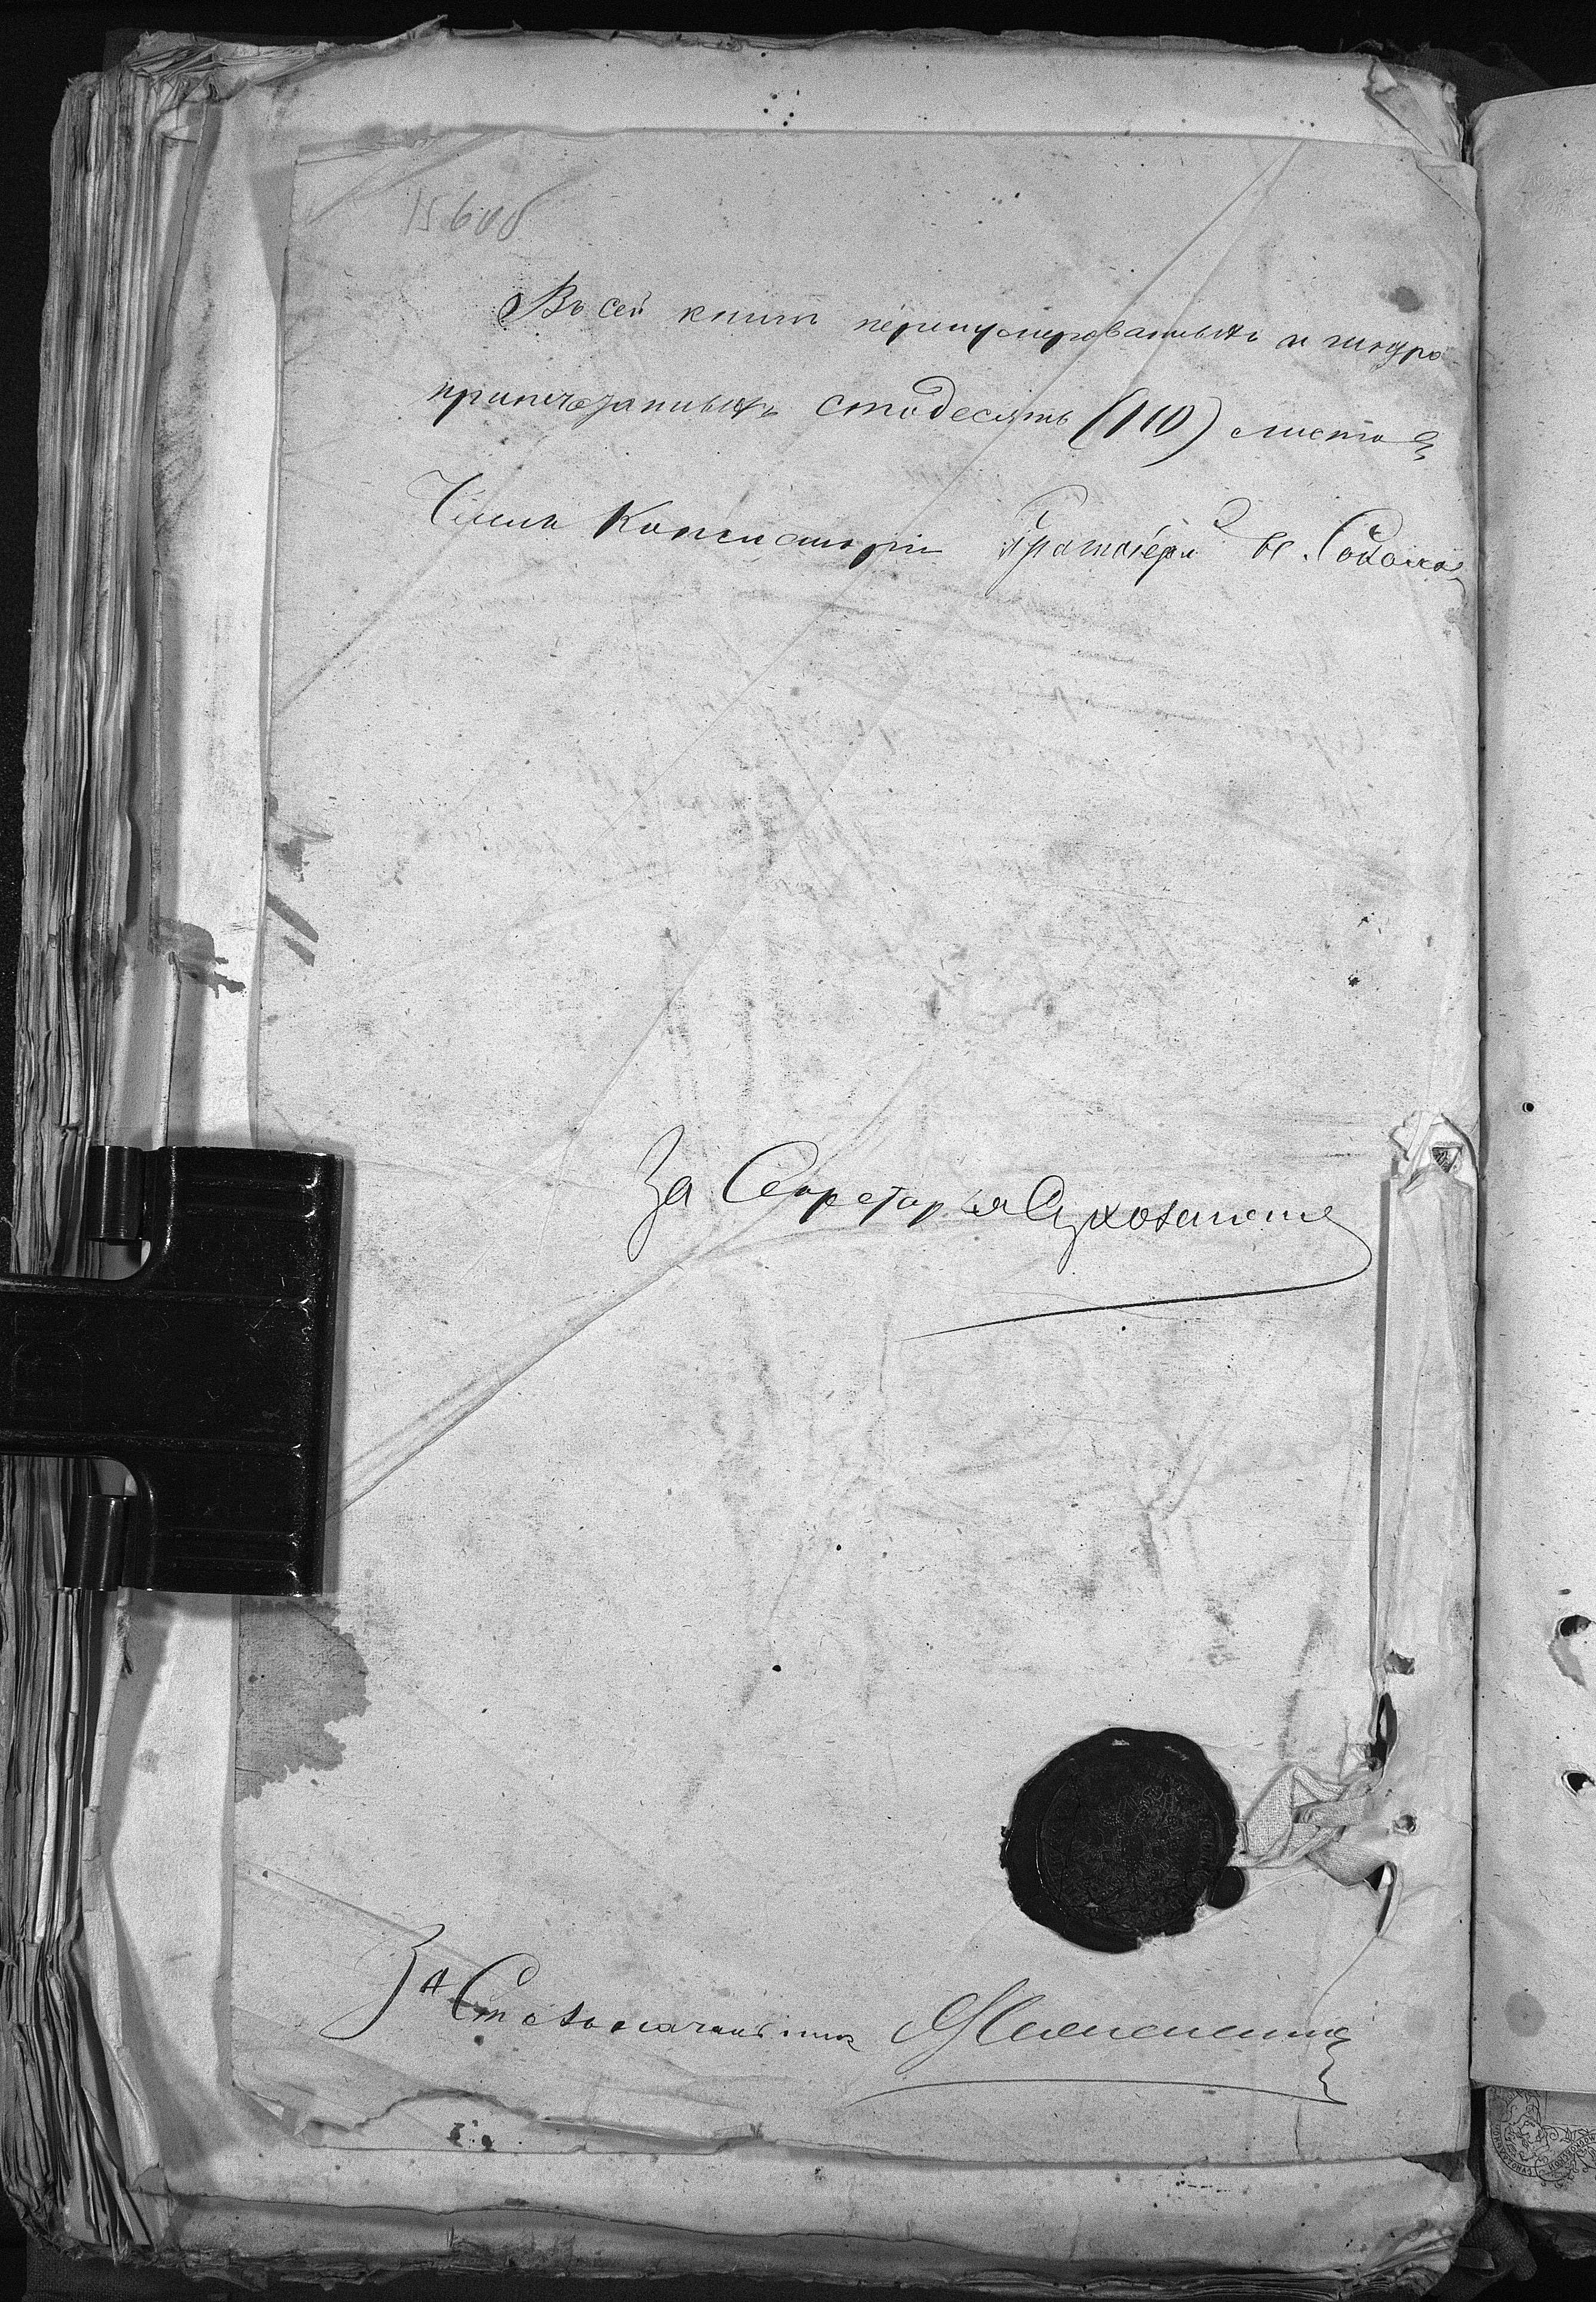 156об
Въ сей книгѣ перенумерованныхъ и шнуро
припечатанныхъ стодесять (110) листовъ
Членъ Консисторіи Протоіерей В. Соколов
За Секретаря
За Столоначальника